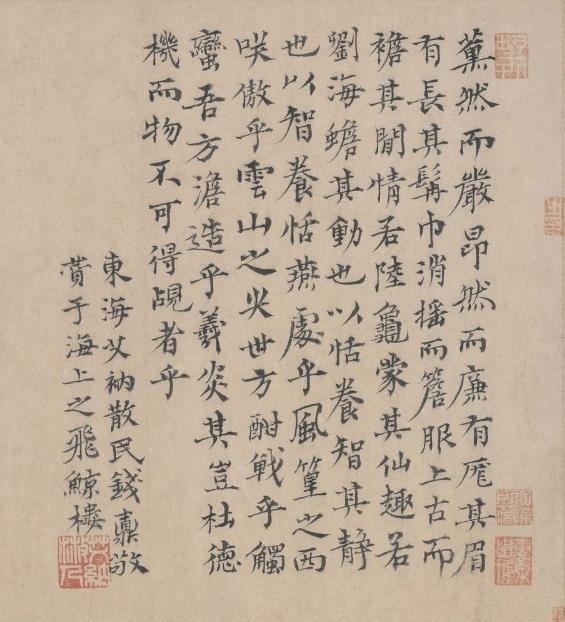 薰然而嚴昂然而廉有厖其眉
有長其髯巾消摇而簷服上古而
襜其閒情若陸龜蒙其仙趣若
劉海蟾其動也以恬養智其静
也以智養恬燕處乎風篁之西
咲傲乎雲山之尖世方酣戰乎觸
蠻吾方澹造乎羲炎其豈杜德
機而物不可得覘者乎
東海艾衲散民錢鼐敬
賛于海上之飛鯨樓